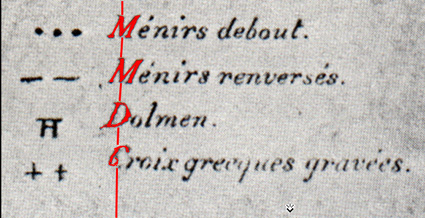 Ménirs debout.
Ménirs renversés.
Dolmen.
Croix grecques gravées.